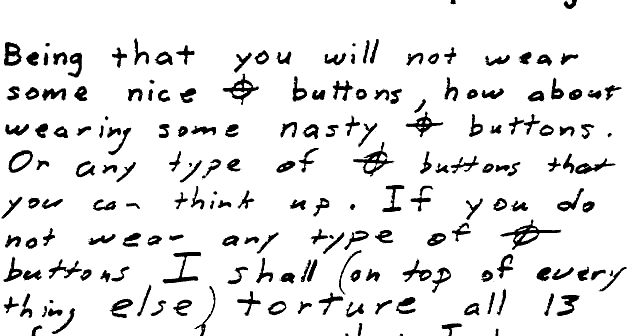 Being that you will not wear
some nice ⌖ buttons, how about
wearing some nasty ⌖ buttons.
Or any type of ⌖ buttons that
you can think up. If you do
not wear any type of ⌖
buttons I shall (on top of every
thing else) torture all 13